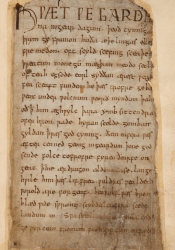 HǷÆT ǷE GARDE
na ingear dagum. þeod cyninga
þrym ge frunon huða æþelingas ellen
fremedon. oft scyld scefing sceaþena
þreatum monegū mægþum meodo setla
of teah egsode eorl syððan ærest ƿearð
fea sceaft funden he þæs frofre
ƿeox under ƿolcnum ƿeorð myndum þah
oð þæt him æghƿylc þara ymb sittendra
ofer hron rade hyran scolde gomban
gyldan þæt ƿæs god cyning. ðæm eafera ƿæs
æfter cenned geong in geardum þone god
sende folce tofrofre fyren ðearfe on
geat þ hie ær drugon aldor ase. lange
hƿile him þæs lif frea ƿuldres ƿealdend
ƿorold are for geaf. beoƿulf ƿæs breme
blæd ƿide sprang scyldes eafera scede
landum in. Sƿa sceal